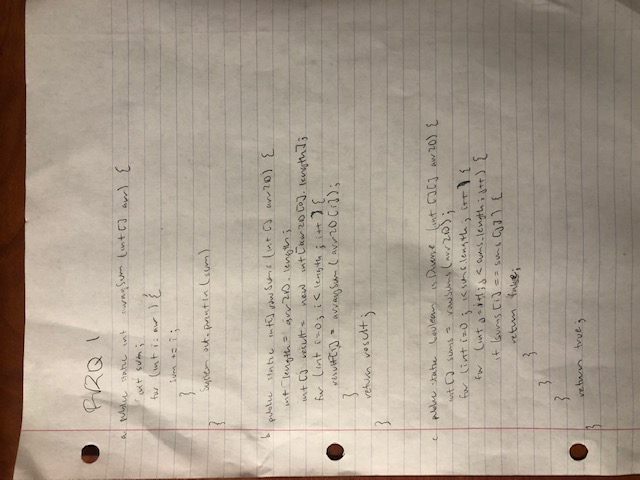 FRQ 1
a. public static int arraySum (int [] arr) {
int sum;
for (int i: arr) {
sum += i;
}
System.out.println (sum)
}
b. public static int[] rowSums (int [] arr2D) {
int length = arr2D.length;
int [] result = new int [arr2D[0].length];
for (int i=0; i< length; i++) {
result[i] = arraySum (arr2D [i]);
}
return result;
}
c. public static boolean isDiverse (int [][] arr2D) {
int [] sums = rowSums (arr2D);
for (int i=0; i<sums.length; i++) {
for (int j=i+1; j<sums.length; j++) {
if (sums [i] == sums [j]) {
return false;
}
}
}
return true;
}